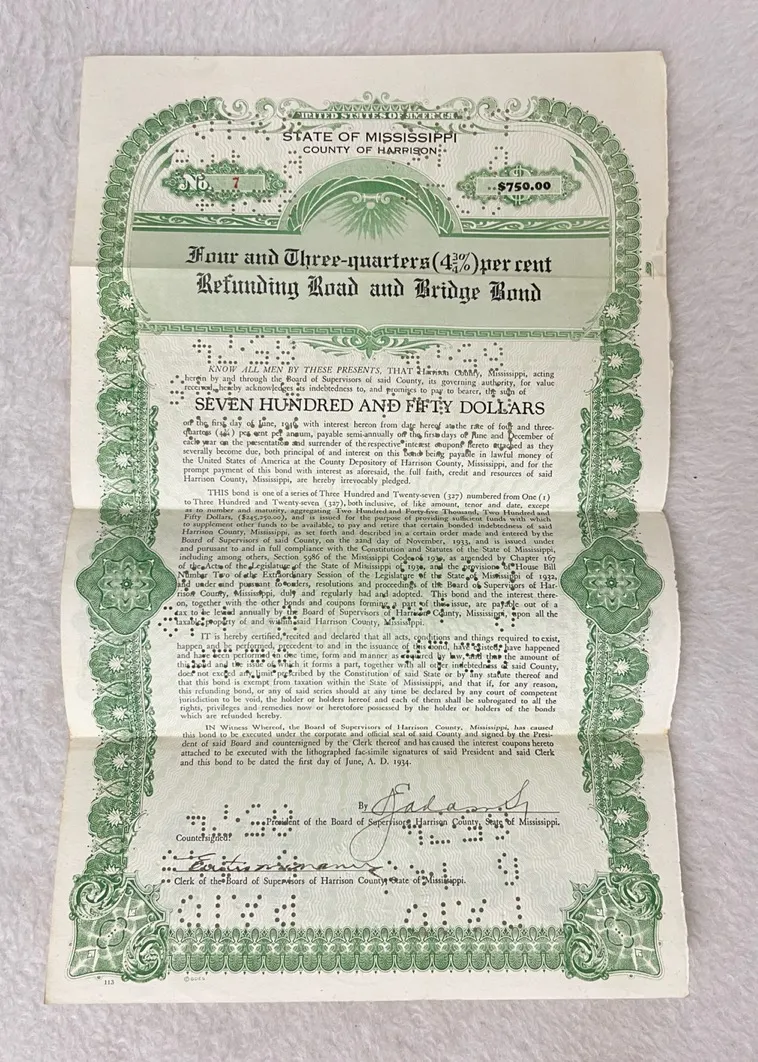 UNITED STATES OF AMERICA
STATE OF MISSISSIPPI
COUNTY OF HARRISON
No. 7
$750.00
Four and Three-quarters (4¾%) per cent
Refunding Road and Bridge Bond
KNOW ALL MEN BY THESE PRESENTS, THAT Harrison County, Mississippi, acting
herein by and through the Board of Supervisors of said County, its governing authority, for value
received, hereby acknowledges its indebtedness to, and promises to pay to bearer, the sum of
SEVEN HUNDRED AND FIFTY DOLLARS
on the first day of June, with interest hereon from date hereof at the rate of four and three-
quarters (4¾) per cent per annum, payable semi-annually on the first days of June and December of
each year on the presentation and surrender of the respective interest coupons hereto attached as they
severally become due, both principal of and interest on this bond being payable in lawful money of
the United States of America at the County Depository of Harrison County, Mississippi, and for the
prompt payment of this bond with interest as aforesaid, the full faith, credit and resources of said
Harrison County, Mississippi, are hereby irrevocably pledged.
THIS bond is one of a series of Three Hundred and Twenty-seven (327) numbered from One (1)
to Three Hundred and Twenty-seven (327), both inclusive, of like amount, tenor and date, except
as to number and maturity, aggregating Two Hundred and Forty-five Thousand, Two Hundred and
Fifty Dollars, ($245,250.00), and is issued for the purpose of providing sufficient funds with which
to supplement other funds to be available, to pay and retire that certain bonded indebtedness of said
Harrison County, Mississippi, as set forth and described in a certain order made and entered by the
Board of Supervisors of said County, on the 22nd day of November, 1933, and is issued under
and pursuant to and in full compliance with the Constitution and Statutes of the State of Mississippi,
including among others, Section 5986 of the Mississippi Code of 1930, as amended by Chapter 167
of the Acts of the Legislature of the State of Mississippi of and the provisions of House Bill
Number Two of the Extraordinary Session of the Legislature of the State of Mississippi of 1932,
and under and pursuant to orders, resolutions and proceedings of the Board of Supervisors of Har-
rison County, Mississippi, duly and regularly had and adopted. This bond and the interest there-
on, together with the other bonds and coupons forming a part of this issue, are payable out of a
tax to be levied annually by the Board of Supervisors of Harrison County, Mississippi, upon all the
taxable property of and within said Harrison County, Mississippi.
IT is hereby certified, recited and declared that all acts, conditions and things required to exist,
happen and be performed, precedent to and in the issuance of this bond, have existed, have happened
and have been performed in due time, form and manner as required by law, and that the amount of
this bond and the issue of which it forms a part, together with all other indebtedness of said County,
does not exceed any limit prescribed by the Constitution of said State or by any statute thereof and
that this bond is exempt from taxation within the State of Mississippi, and that if, for any reason,
this refunding bond, or any of said series should at any time be declared by any court of competent
jurisdiction to be void, the holder or holders hereof and each of them shall be subrogated to all the
rights, privileges and remedies now or heretofore possessed by the holder or holders of the bonds
which are refunded hereby.
IN Witness Whereof, the Board of Supervisors of Harrison County, Mississippi, has caused
this bond to be executed under the corporate and official seal of said County and signed by the Presi-
dent of said Board and countersigned by the Clerk thereof and has caused the interest coupons hereto
attached to be executed with the lithographed fac-simile signatures of said President and said Clerk
and this bond to be dated the first day of June, A. D. 1934.
By
President of the Board of Supervisors, Harrison County, State of Mississippi.
Countersigned:
Clerk of the Board of Supervisors of Harrison County, State of Mississippi.
PAID PAID
113